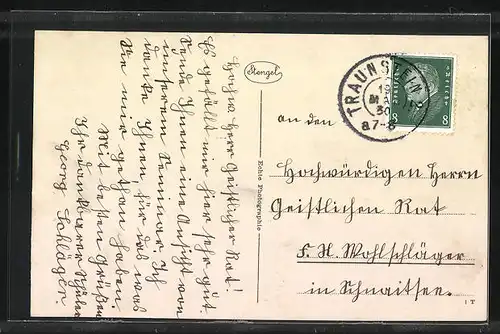 Hochw. Herr Geistlicher Rat!
Es gefällt mir hier sehr gut.
Sende Ihnen eine Ansicht von
unserem Seminar. Ich
danke Ihnen, für das was
Sie mir getan haben.
Mit besten Grüßen
Ihr dankbarer Schüler
Georg
Stengel
Echte Photographie
TRAUNSTEIN 2
19
MAI
30
8 8
an den
Hochwürdigen Herrn
Geistlichen Rat
F. H. Wohlschläger
in Schnaitsee.
1 T